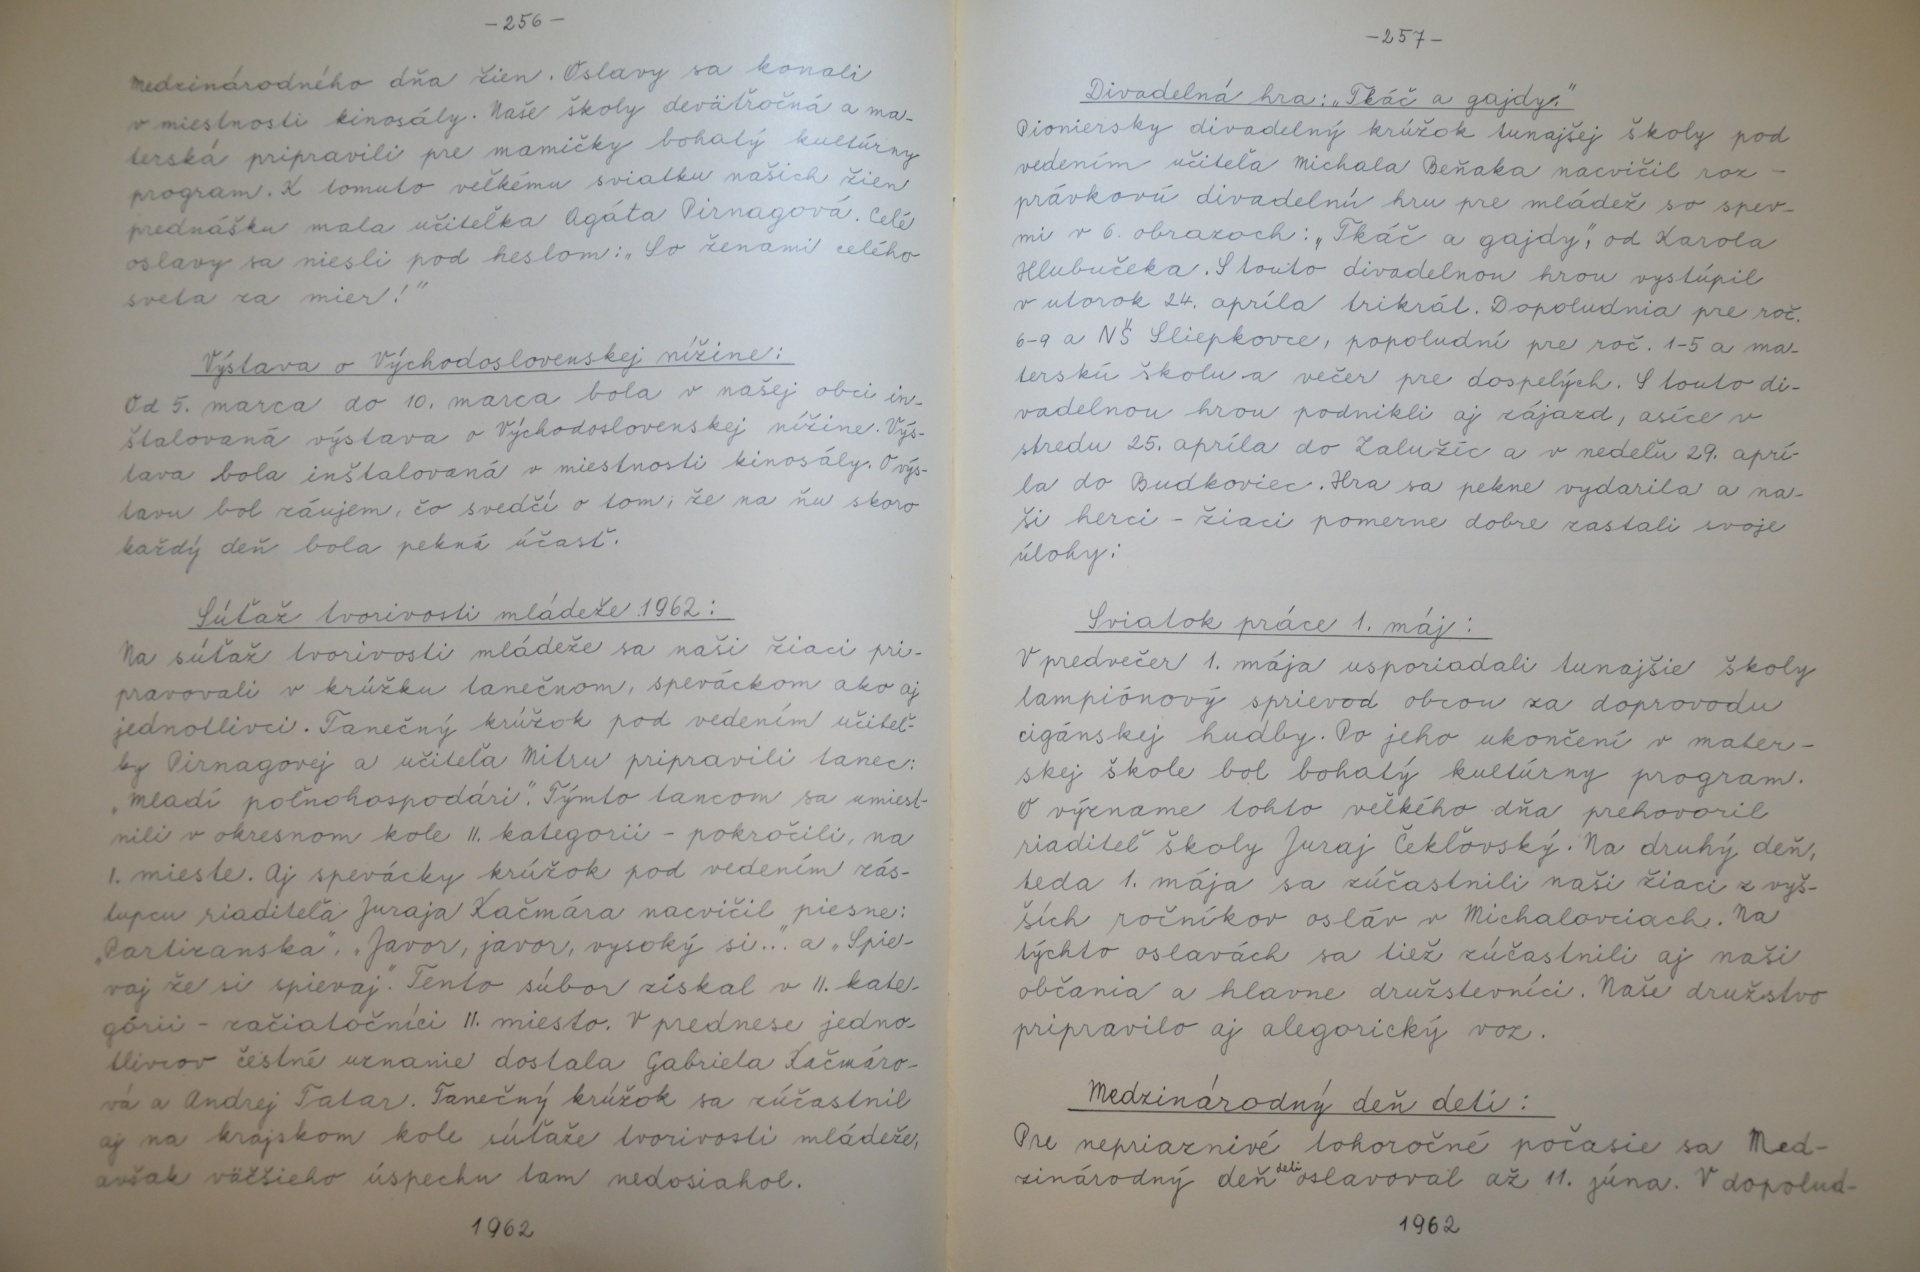 -256-
Medzinárodného dňa žien. Oslavy sa konali
v miestnosti kinosály. Naše školy deväťročná a ma-
terská pripravili pre mamičky bohatý kultúrny
program. K tomuto veľkému sviatku našich žien
prednášku mala učiteľka Agáta Pirnagová. Celé
oslavy sa niesli pod heslom: „So ženami celého
sveta za mier!"
Výstava o Východoslovenskej nížine:
Od 5. marca do 10. marca bola v našej obci in-
štalovaná výstava o Východoslovenskej nížine. Výs-
tava bola inštalovaná v miestnosti kinosály. O výs-
tavu bol záujem, čo svedčí o tom, že na ňu skoro
každý deň bola pekná účasť.
Súťaž tvorivosti mládeže 1962:
Na súťaž tvorivosti mládeže sa naši žiaci pri-
pravovali v krúžku tanečnom, speváckom ako aj
jednotlivci. Tanečný krúžok pod vedením učiteľ-
ky Pirnagovej a učiteľa Mitru pripravili tanec:
„Mladí poľnohospodári". Týmto tancom sa umiest-
nili v okresnom kole II. kategorii - pokročilí, na
I. mieste. Aj spevácky krúžok pod vedením zás-
tupcu riaditeľa Juraja Kačmára nacvičil piesne:
„Partizanska", „Javor, javor, vysoký si..." a „Spie-
vaj že si spievaj". Tento súbor získal v II. kate-
górii - začiatočníci II. miesto. V prednese jedno-
tlivcov čestné uznanie dostala Gabriela Kačmáro-
vá a Andrej Tatar. Tanečný krúžok sa zúčastnil
aj na krajskom kole súťaže tvorivosti mládeže,
avšak väčšieho úspechu tam nedosiahol.
1962
-257-
Divadelná hra: „Tkáč a gajdy."
Pioniersky divadelný krúžok tunajšej školy pod
vedením učiteľa Michala Beňaka nacvičil roz-
právkovú divadelnú hru pre mládež so spev-
mi v 6. obrazoch: „Tkáč a gajdy", od Karola
Hlubučeka. S touto divadelnou hrou vystúpil
v utorok 24. apríla trikrát. Dopoludnia pre roč.
6-9 a NŠ Sliepkovce, popoludní pre roč. 1-5 a ma-
terskú školu a večer pre dospelých. S touto di-
vadelnou hrou podnikli aj zájazd, asíce v
stredu 25. apríla do Zalužíc a v nedeľu 29. aprí-
la do Budkoviec. Hra sa pekne vydarila a na-
ši herci - žiaci pomerne dobre zastali svoje
úlohy:
Sviatok práce 1. máj:
V predvečer 1. mája usporiadali tunajšie školy
lampiónový sprievod obcou za doprovodu
cigánskej hudby. Po jeho ukončení v mater-
skej škole bol bohatý kultúrny program.
O význame tohto veľkého dňa prehovoril
riaditeľ školy Juraj Čekľovský. Na druhý deň,
teda 1. mája sa zúčastnili naši žiaci z vyš-
ších ročníkov osláv v Michalovciach. Na
týchto oslavách sa tiež zúčastnili aj naši
občania a hlavne družstevníci. Naše družstvo
pripravilo aj alegorický voz.
Medzinárodný deň detí:
Pre nepriaznivé tohoročné počasie sa Med-
zinárodný deň detí oslavoval až 11. júna. V dopolud-
1962